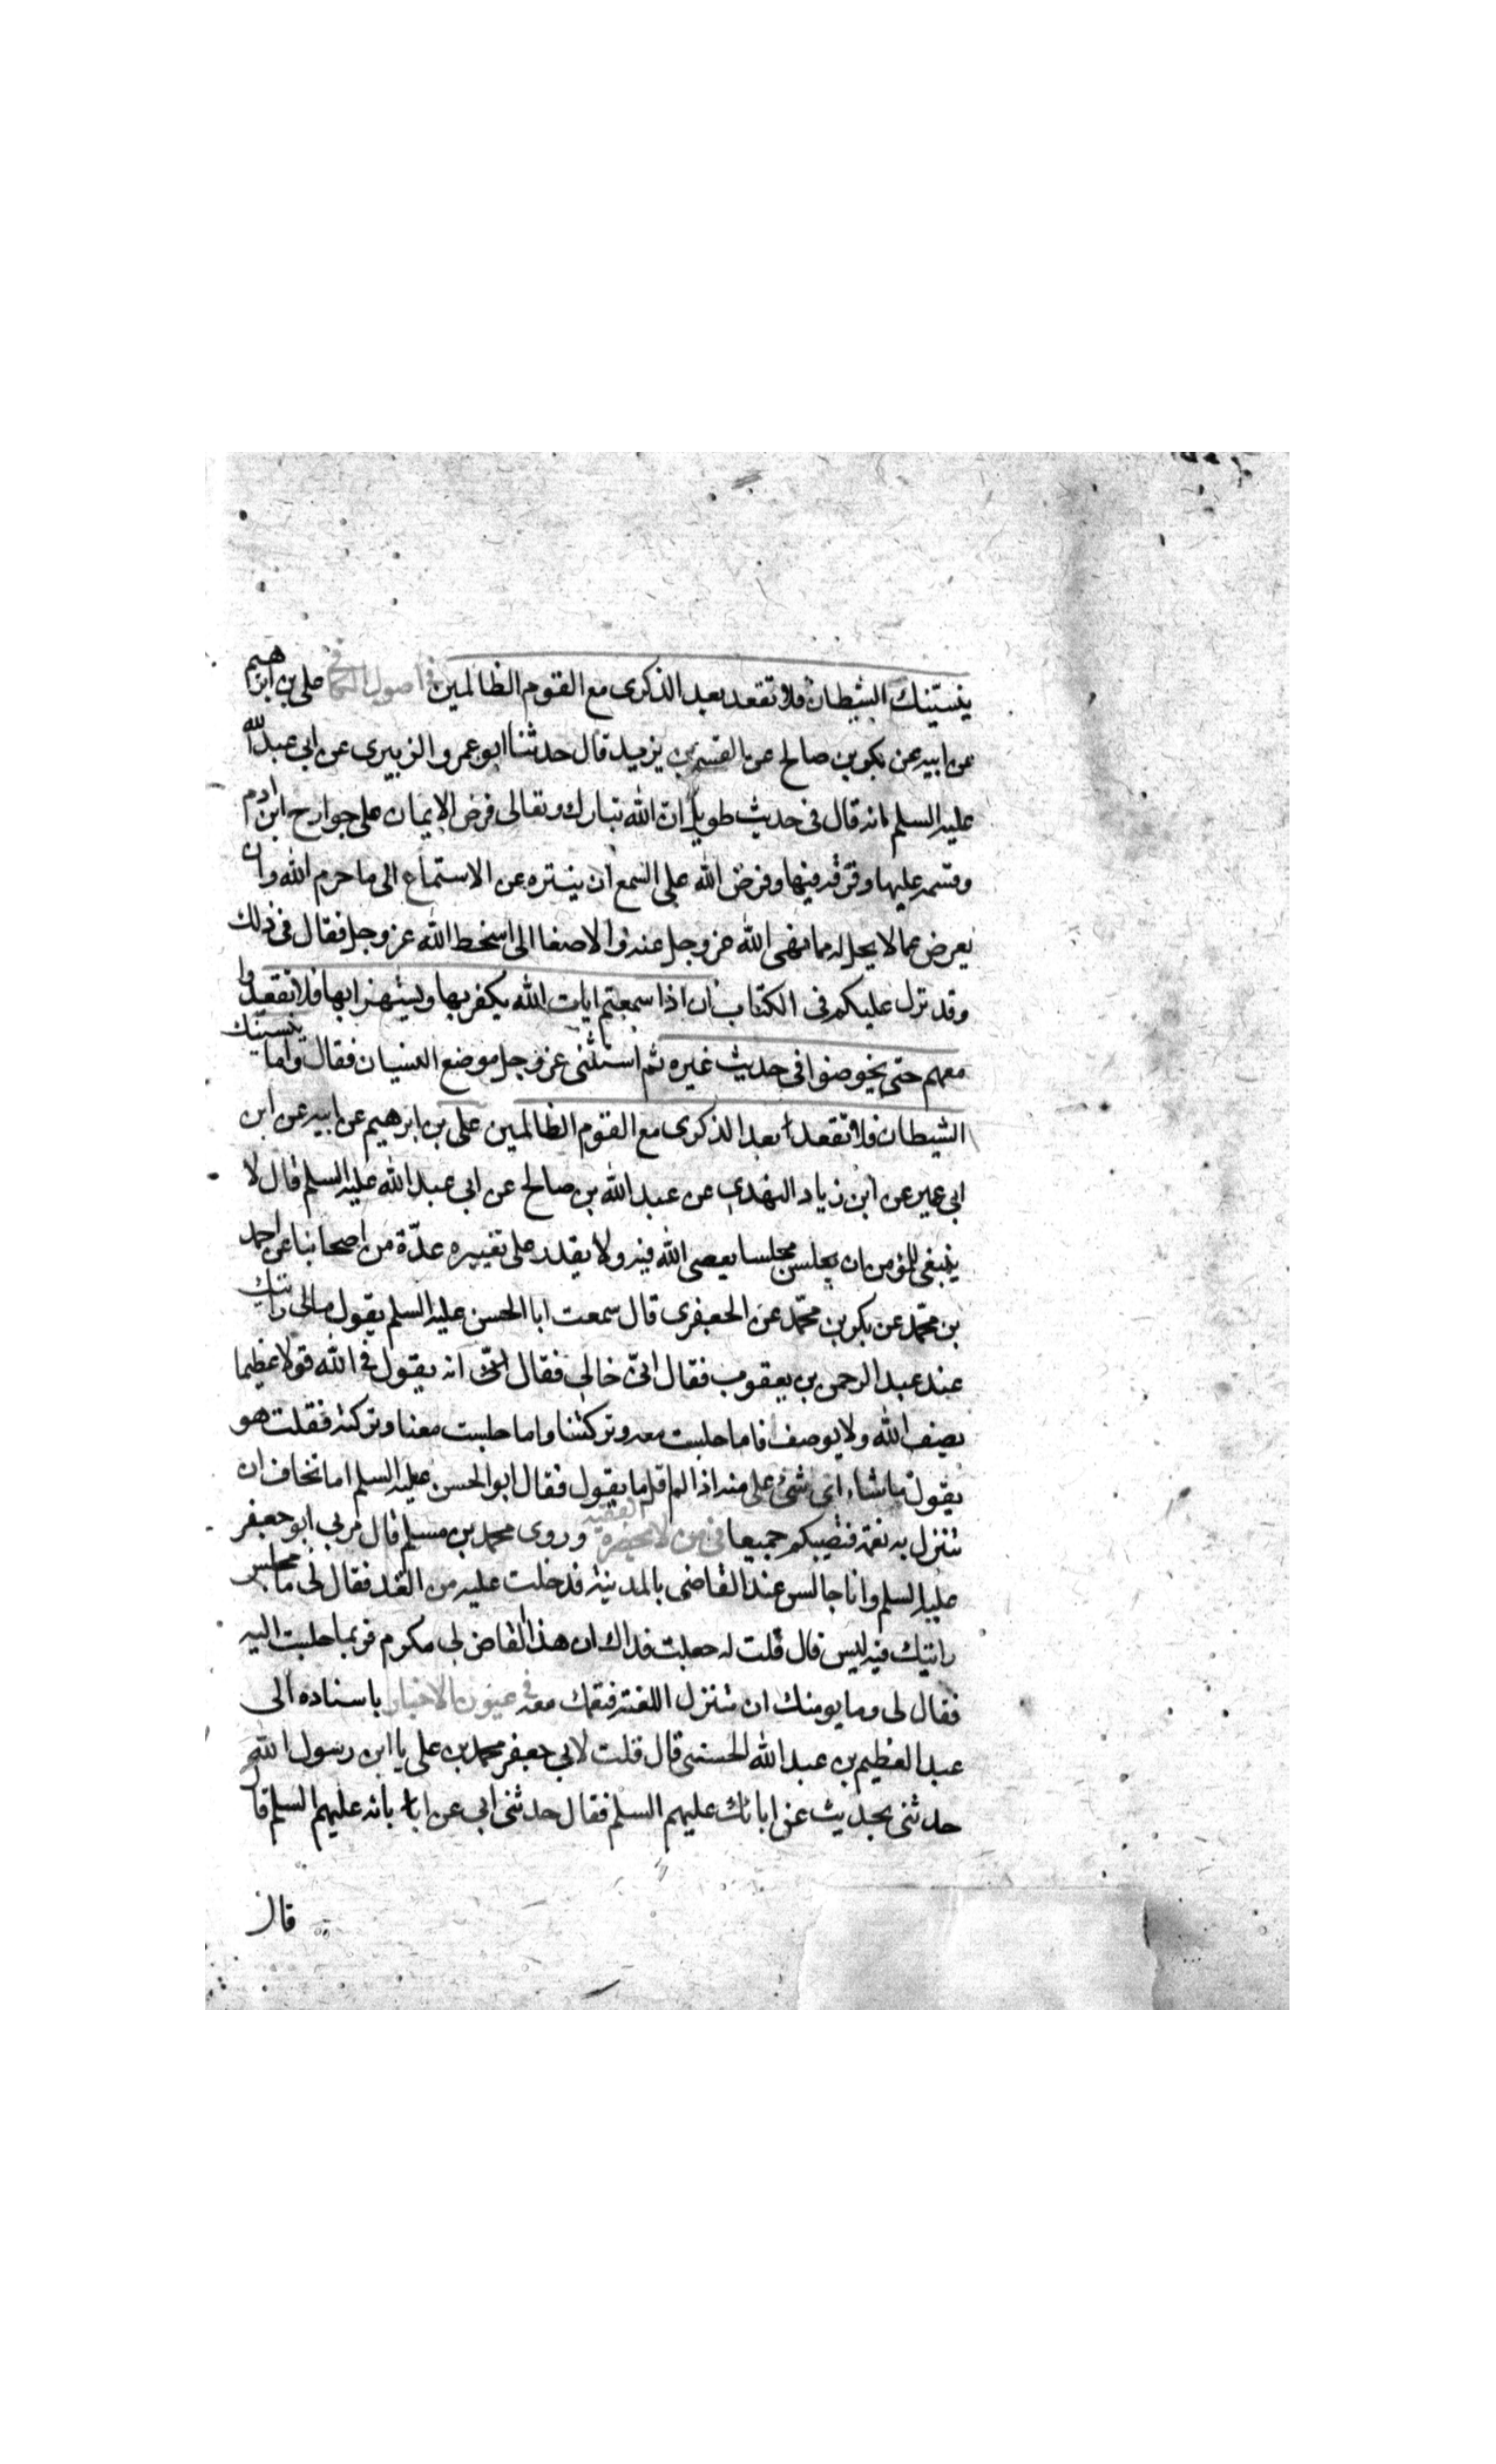 ينسينك الشيطان فلا تقعد بعد الذكرى مع القوم الظالمين في اصول الكافي على بن ابرهيم
عن ابيه عن بكر بن صالح عن القسم بن يزيد قال حدثنا ابو عمرو الزبيرى عن ابى عبد الله
عليه السلم انه قال فى حديث طويل ان الله تبارك وتعالى فرض الايمان على جوارح ابن ادم
وقسمه عليها وفرقه فيها وفرض الله على السمع ان يتنزه عن الاستماع الى ما حرم الله وان
يعرض عما لا يحل له مما نهى الله عز وجل عنه والاصغا الى اسخط الله عز وجل فقال فى ذلك
وقد نزل عليكم فى الكتاب ان اذا سمعتم ايات الله يكفر بها ويستهزا بها فلا تقعدوا
معهم حتى يخوضوا فى حديث غيره ثم استثنى عز وجل موضع النسيان فقال واما ينسينك
الشيطان فلا تقعد بعد الذكرى مع القوم الظالمين على بن ابرهيم عن ابيه عن ابن
ابى عمير عن ابن زياد النهدى عن عبد الله بن صالح عن ابى عبد الله عليه السلم قال لا
ينبغى للمؤمن ان يجلس مجلسا يعصى الله فيه ولا يقدر على تغييره عدّة من اصحابنا عن احمد
بن محمّد عن بكر بن محمّد عن الجعفرى قال سمعت ابا الحسن عليه السلم يقول مالى رايتك
عند عبد الرحمن بن يعقوب فقال انّه خالى فقال انّه يقول فى الله قولا عظيما
يصف الله ولا يوصف فاما جلست معه وتركتنا واما جلست معنا وتركته فقلت هو
يقول ما شاء اى شئ على منه اذا لم اقل ما يقول فقال ابو الحسن عليه السلم اما تخاف ان
تنزل به نقمة فتصيبكم جميعا فى من لا يحضره الفقيه وروى محمد بن مسلم قال مر بى ابو جعفر
عليه السلم وانا جالس عند القاضى بالمدينة فدخلت عليه من الغد فقال لى ما مجلس
رايتك فيه امس قال قلت له جعلت فداك ان هذا القاضى لى مكرم فربما جلست اليه
فقال لى وما يومنك ان تنزل اللعنة فتعمك معه فى عيون الاخبار باسناده الى
عبد العظيم بن عبد الله الحسنى قال قلت لابى جعفر محمد بن على يا ابن رسول الله
حدثنى بحديث عن ابائك عليهم السلم فقال حدثنى ابى عن ابائه عليهم السلم قال
قال